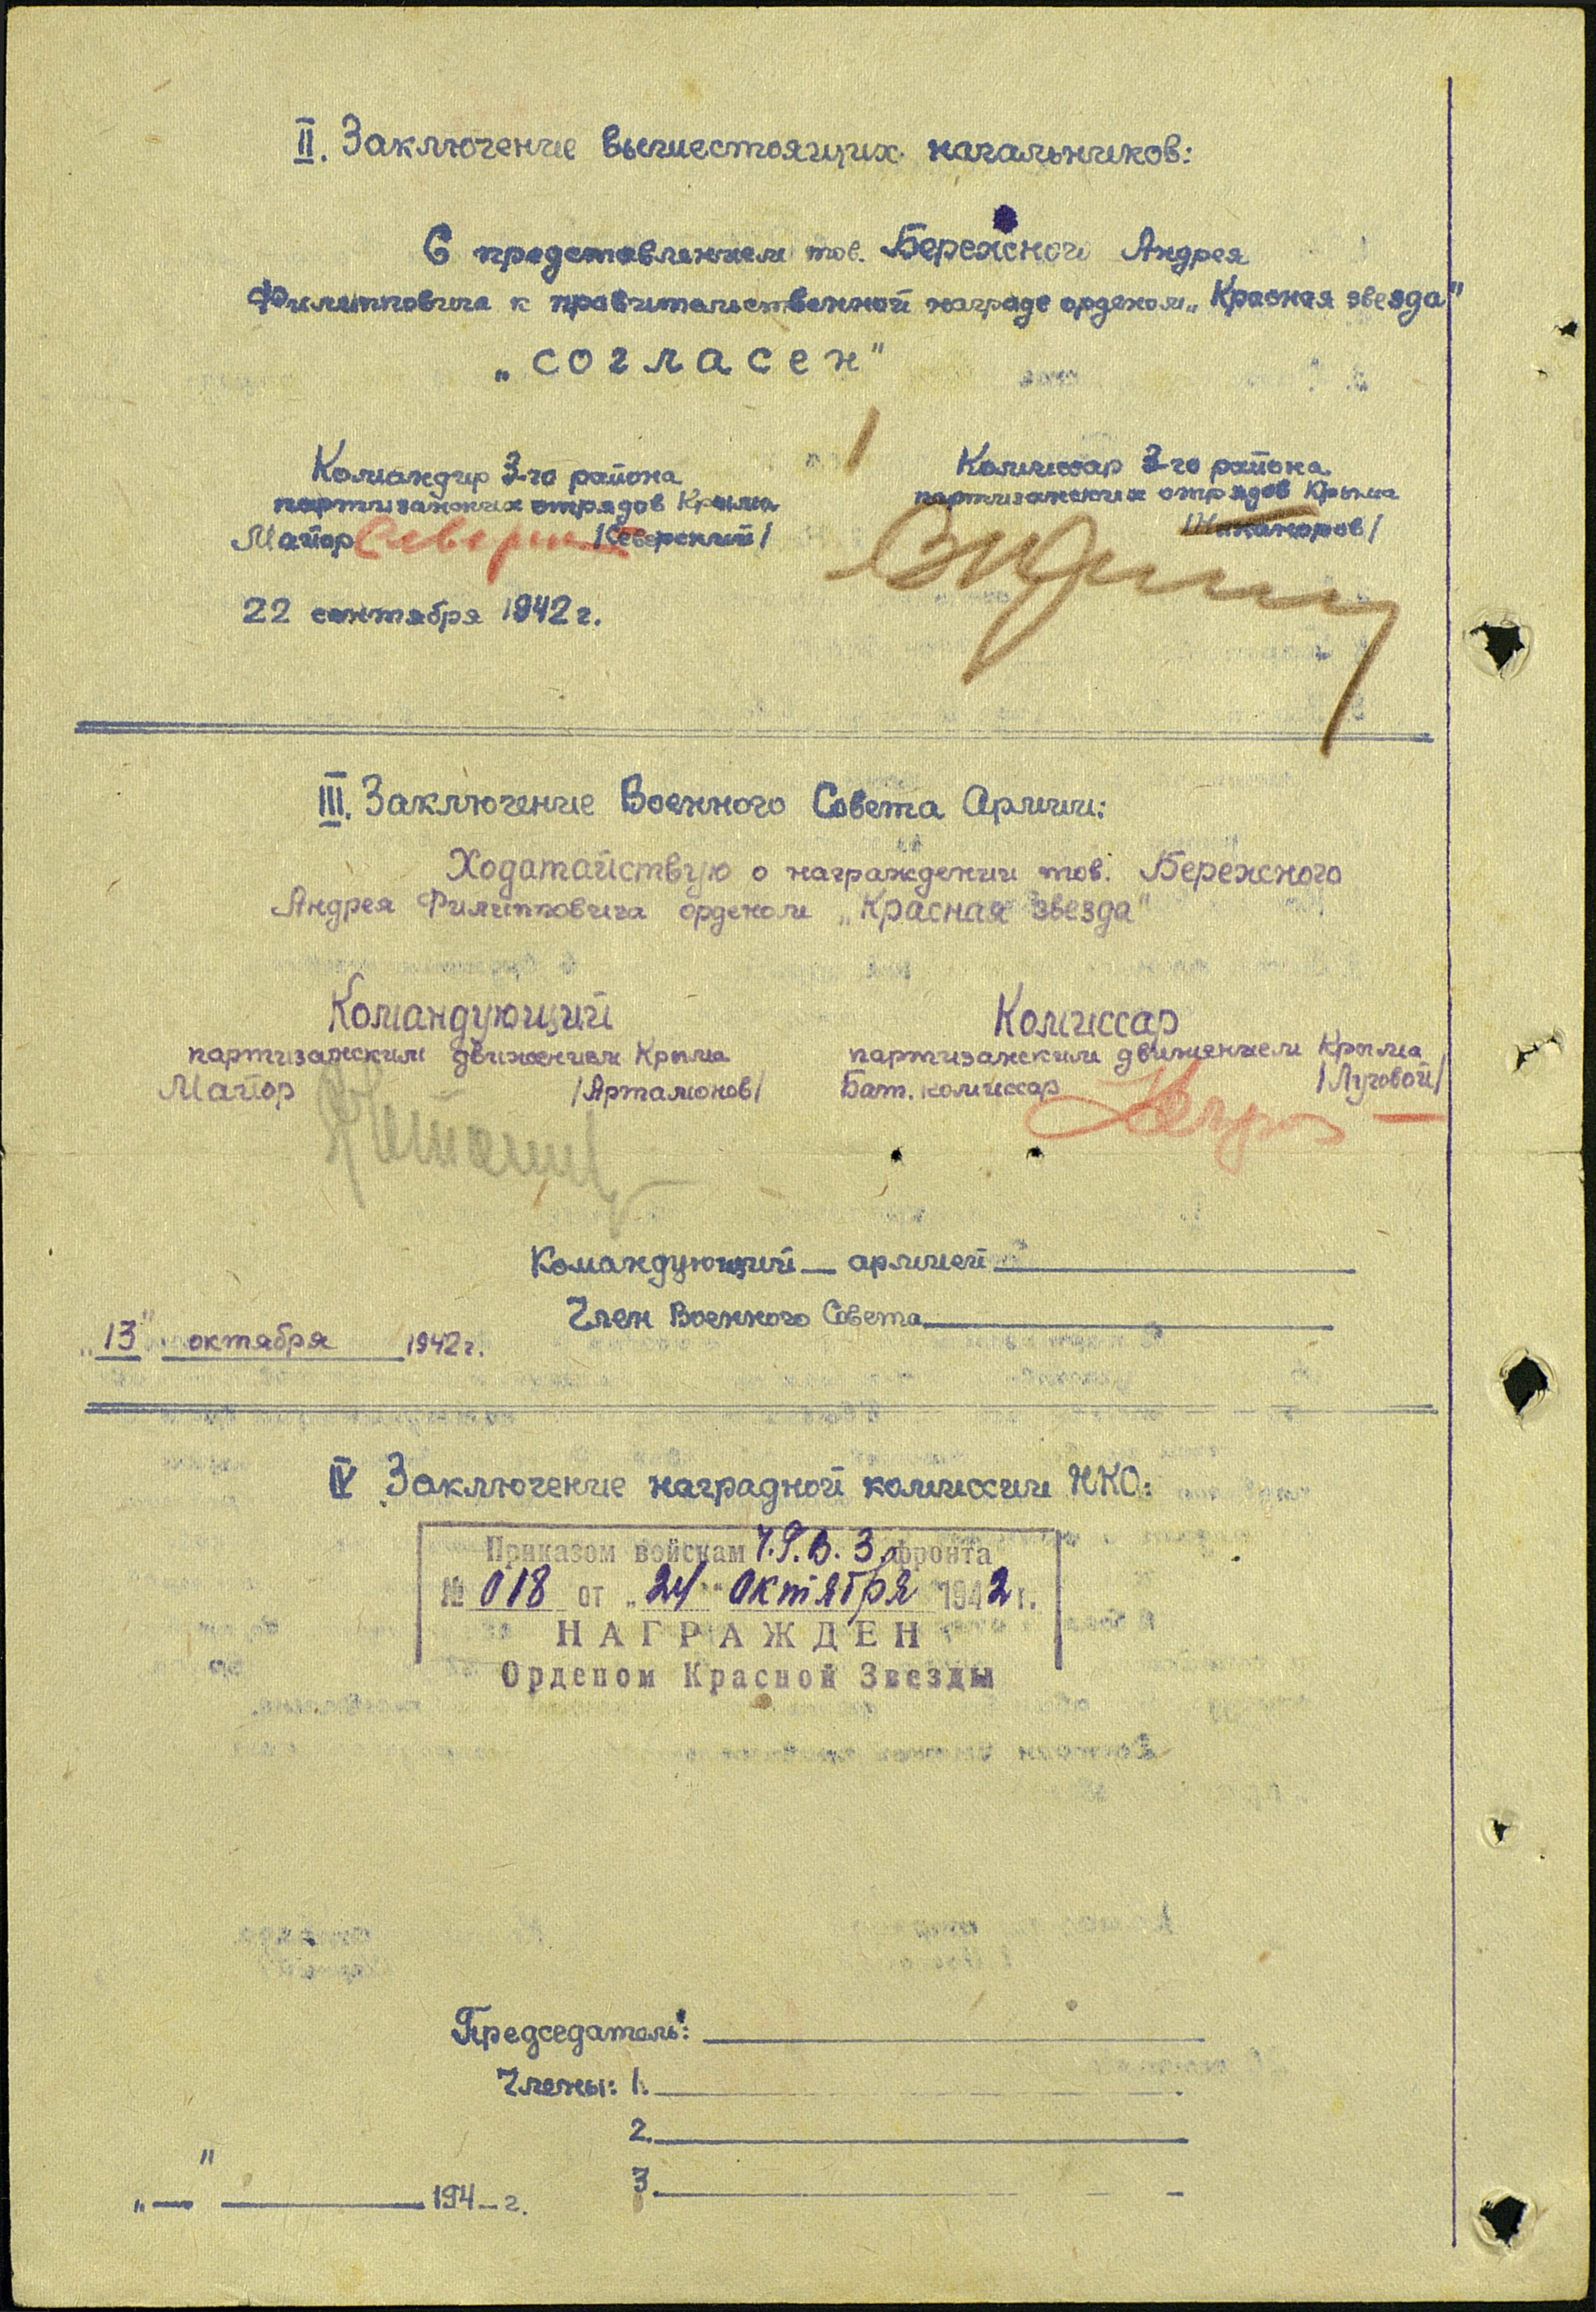 II. Заключение вышестоящих начальников:
С представлением тов. Бережного Андрея
Филипповича к правительственной награде орденом „Красная звезда"
„согласен"
Командир 3-го района
партизанских отрядов Крыма
Майор Северский /Северский/
Комиссар 3-го района
партизанских отрядов Крыма
/Никаноров/
22 сентября 1942 г.
III. Заключение Военного Совета Армии:
Ходатайствую о награждении тов. Бережного
Андрея Филипповича орденом „Красная звезда"
Командующий
партизанским движением Крыма
Майор /Артамонов/
Комиссар
партизанским движением Крыма
Бат. комиссар /Луговой/
Командующий армией
Член Военного Совета
„13" октября 1942 г.
IV Заключение наградной комиссии НКО:
Приказом войскам Ч.Г.В.З. фронта
№ 018 от „24" октября 1942 г.
НАГРАЖДЕН
Орденом Красной Звезды
Председатель:
Члены: 1.
2.
3.
„ " 194 г.